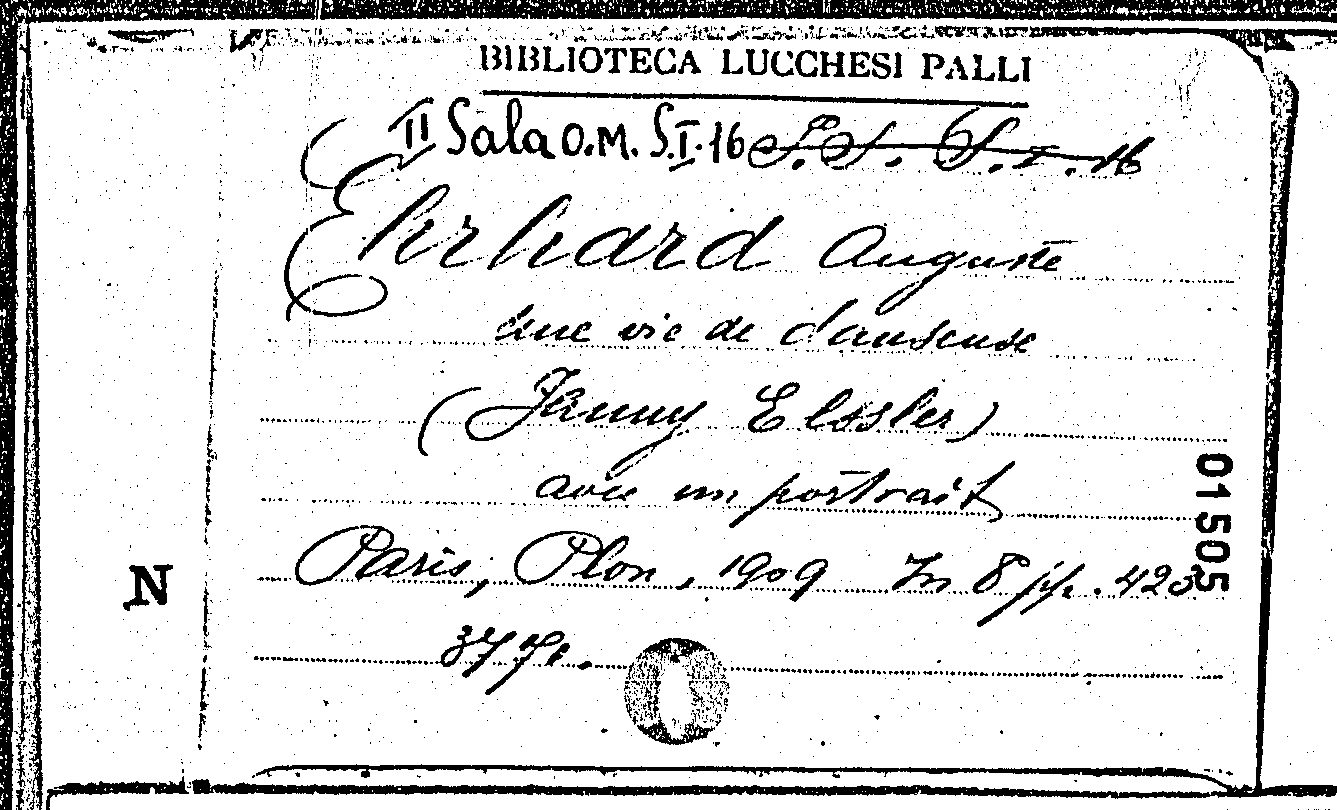 BIBLIOTECA LUCCHESI PALLI
II Sala O.M. S.I.16 S. I. 16
Ehrhard Auguste
Une vie de danseuse
(Fanny Elssler)
avec un portrait
Paris, Plon, 1909 In 8 pp. 423
01505
N